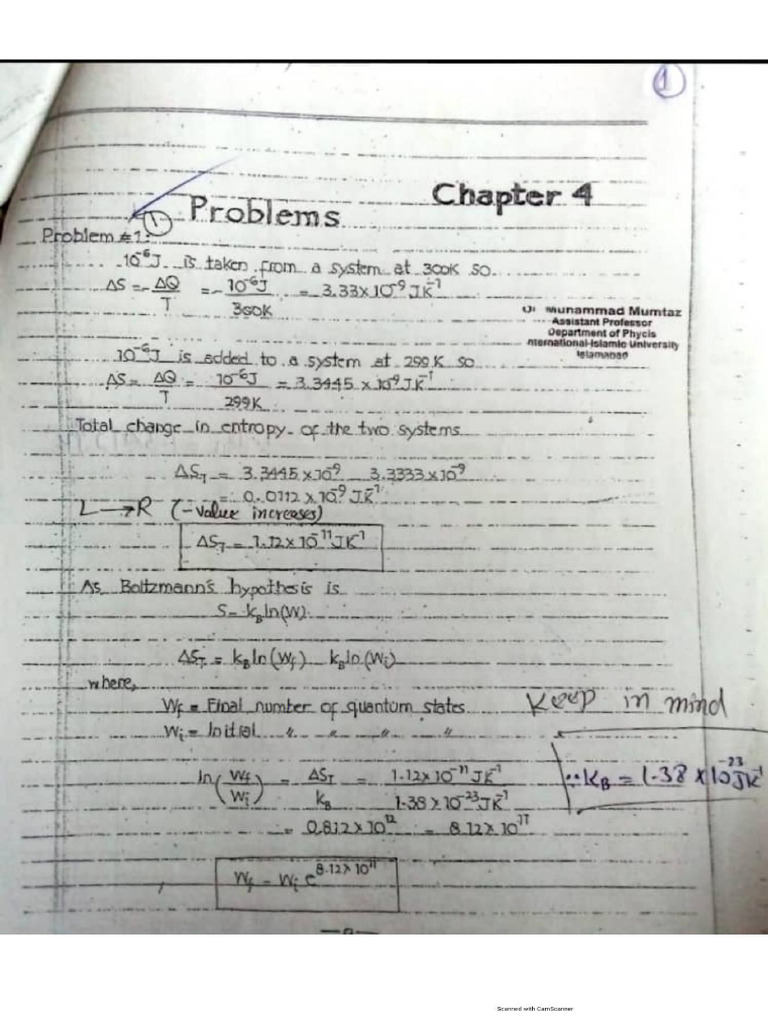 1
Chapter 4
Problems
1
Problem #1:
10⁻⁶J is taken from a system at 300K so
ΔS = - ΔQ/T = - 10⁻⁶J/300K = 3.33×10⁻⁹ JK⁻¹
Muhammad Mumtaz
Assistant Professor
Department of Phycis
International Islamic University
Islamabad
10⁻⁶J is added to a system at 299K so
ΔS = ΔQ/T = 10⁻⁶J/299K = 3.3445 × 10⁻⁹ JK⁻¹
Total change in entropy of the two systems
ΔS_T = 3.3445×10⁻⁹ 3.3333×10⁻⁹
= 0.0112×10⁻⁹ JK⁻¹
L → R (-value increases)
ΔS_T = 1.12×10⁻¹¹JK⁻¹
As Boltzmann's hypothesis is
S = k_B ln(W)
ΔS_T = k_B ln(W_f) k_B ln(W_i)
where,
W_f = Final number of quantum states
Keep in mind
W_i = Initial " " " "
ln(W_f/W_i) = ΔS_T/k_B = 1.12×10⁻¹¹ JK⁻¹/1.38×10⁻²³JK⁻¹
∵ K_B = 1.38 × 10⁻²³JK⁻¹
= 0.812×10¹² = 8.12×10¹¹
W_f = W_i e^8.12×10¹¹
Scanned with CamScanner